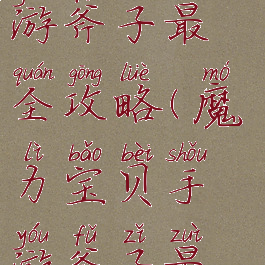 游斧子最
quán gōng lüè mó
全攻略(魔
lì bǎo bèi shǒu
力宝贝手
yóu fǔ zǐ zuì
游斧子最